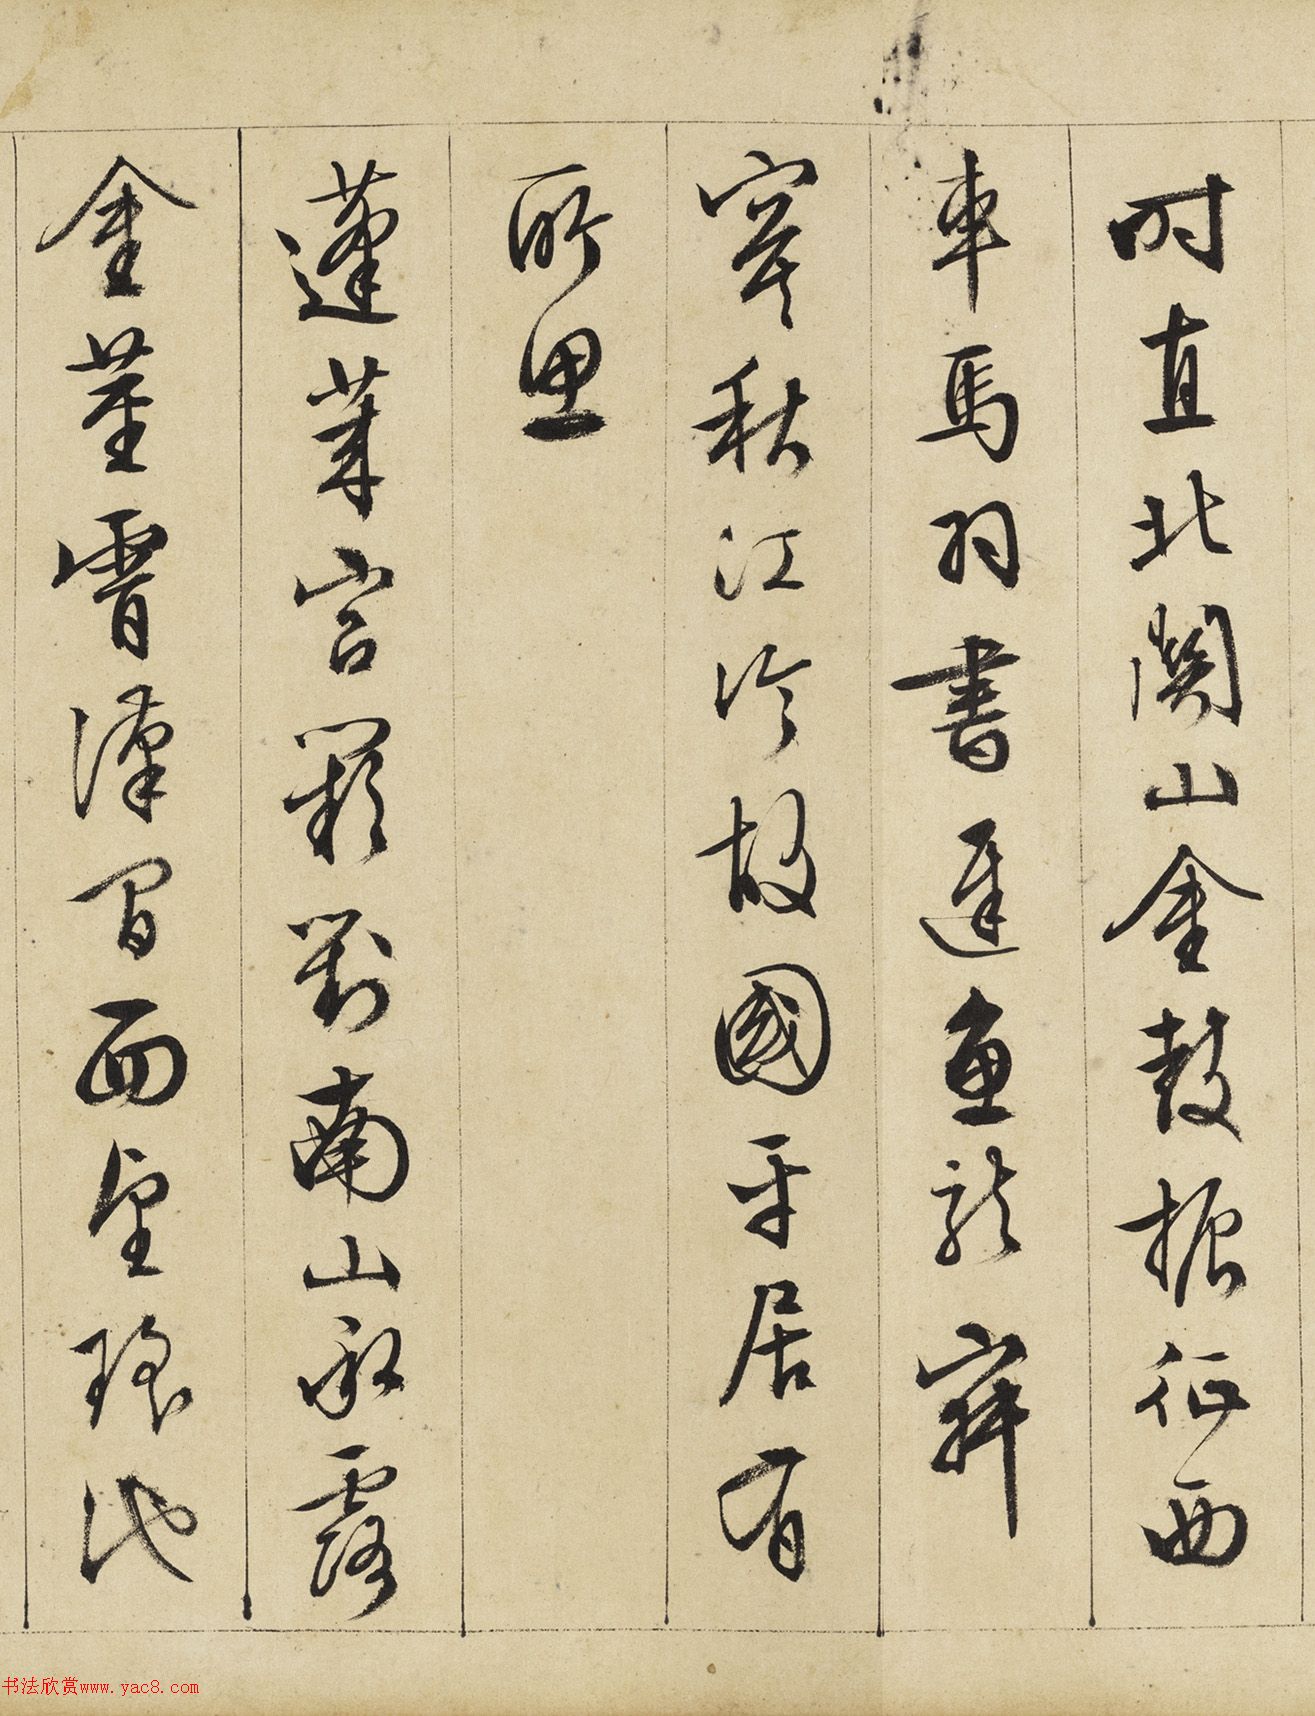 時直北關山金鼓振征西
車馬羽書遲魚龍寂
寞秋江冷故國平居有
所思
蓬萊宮闕對南山承露
金莖霄漢間西望瑤池
书法欣赏www.yac8.com